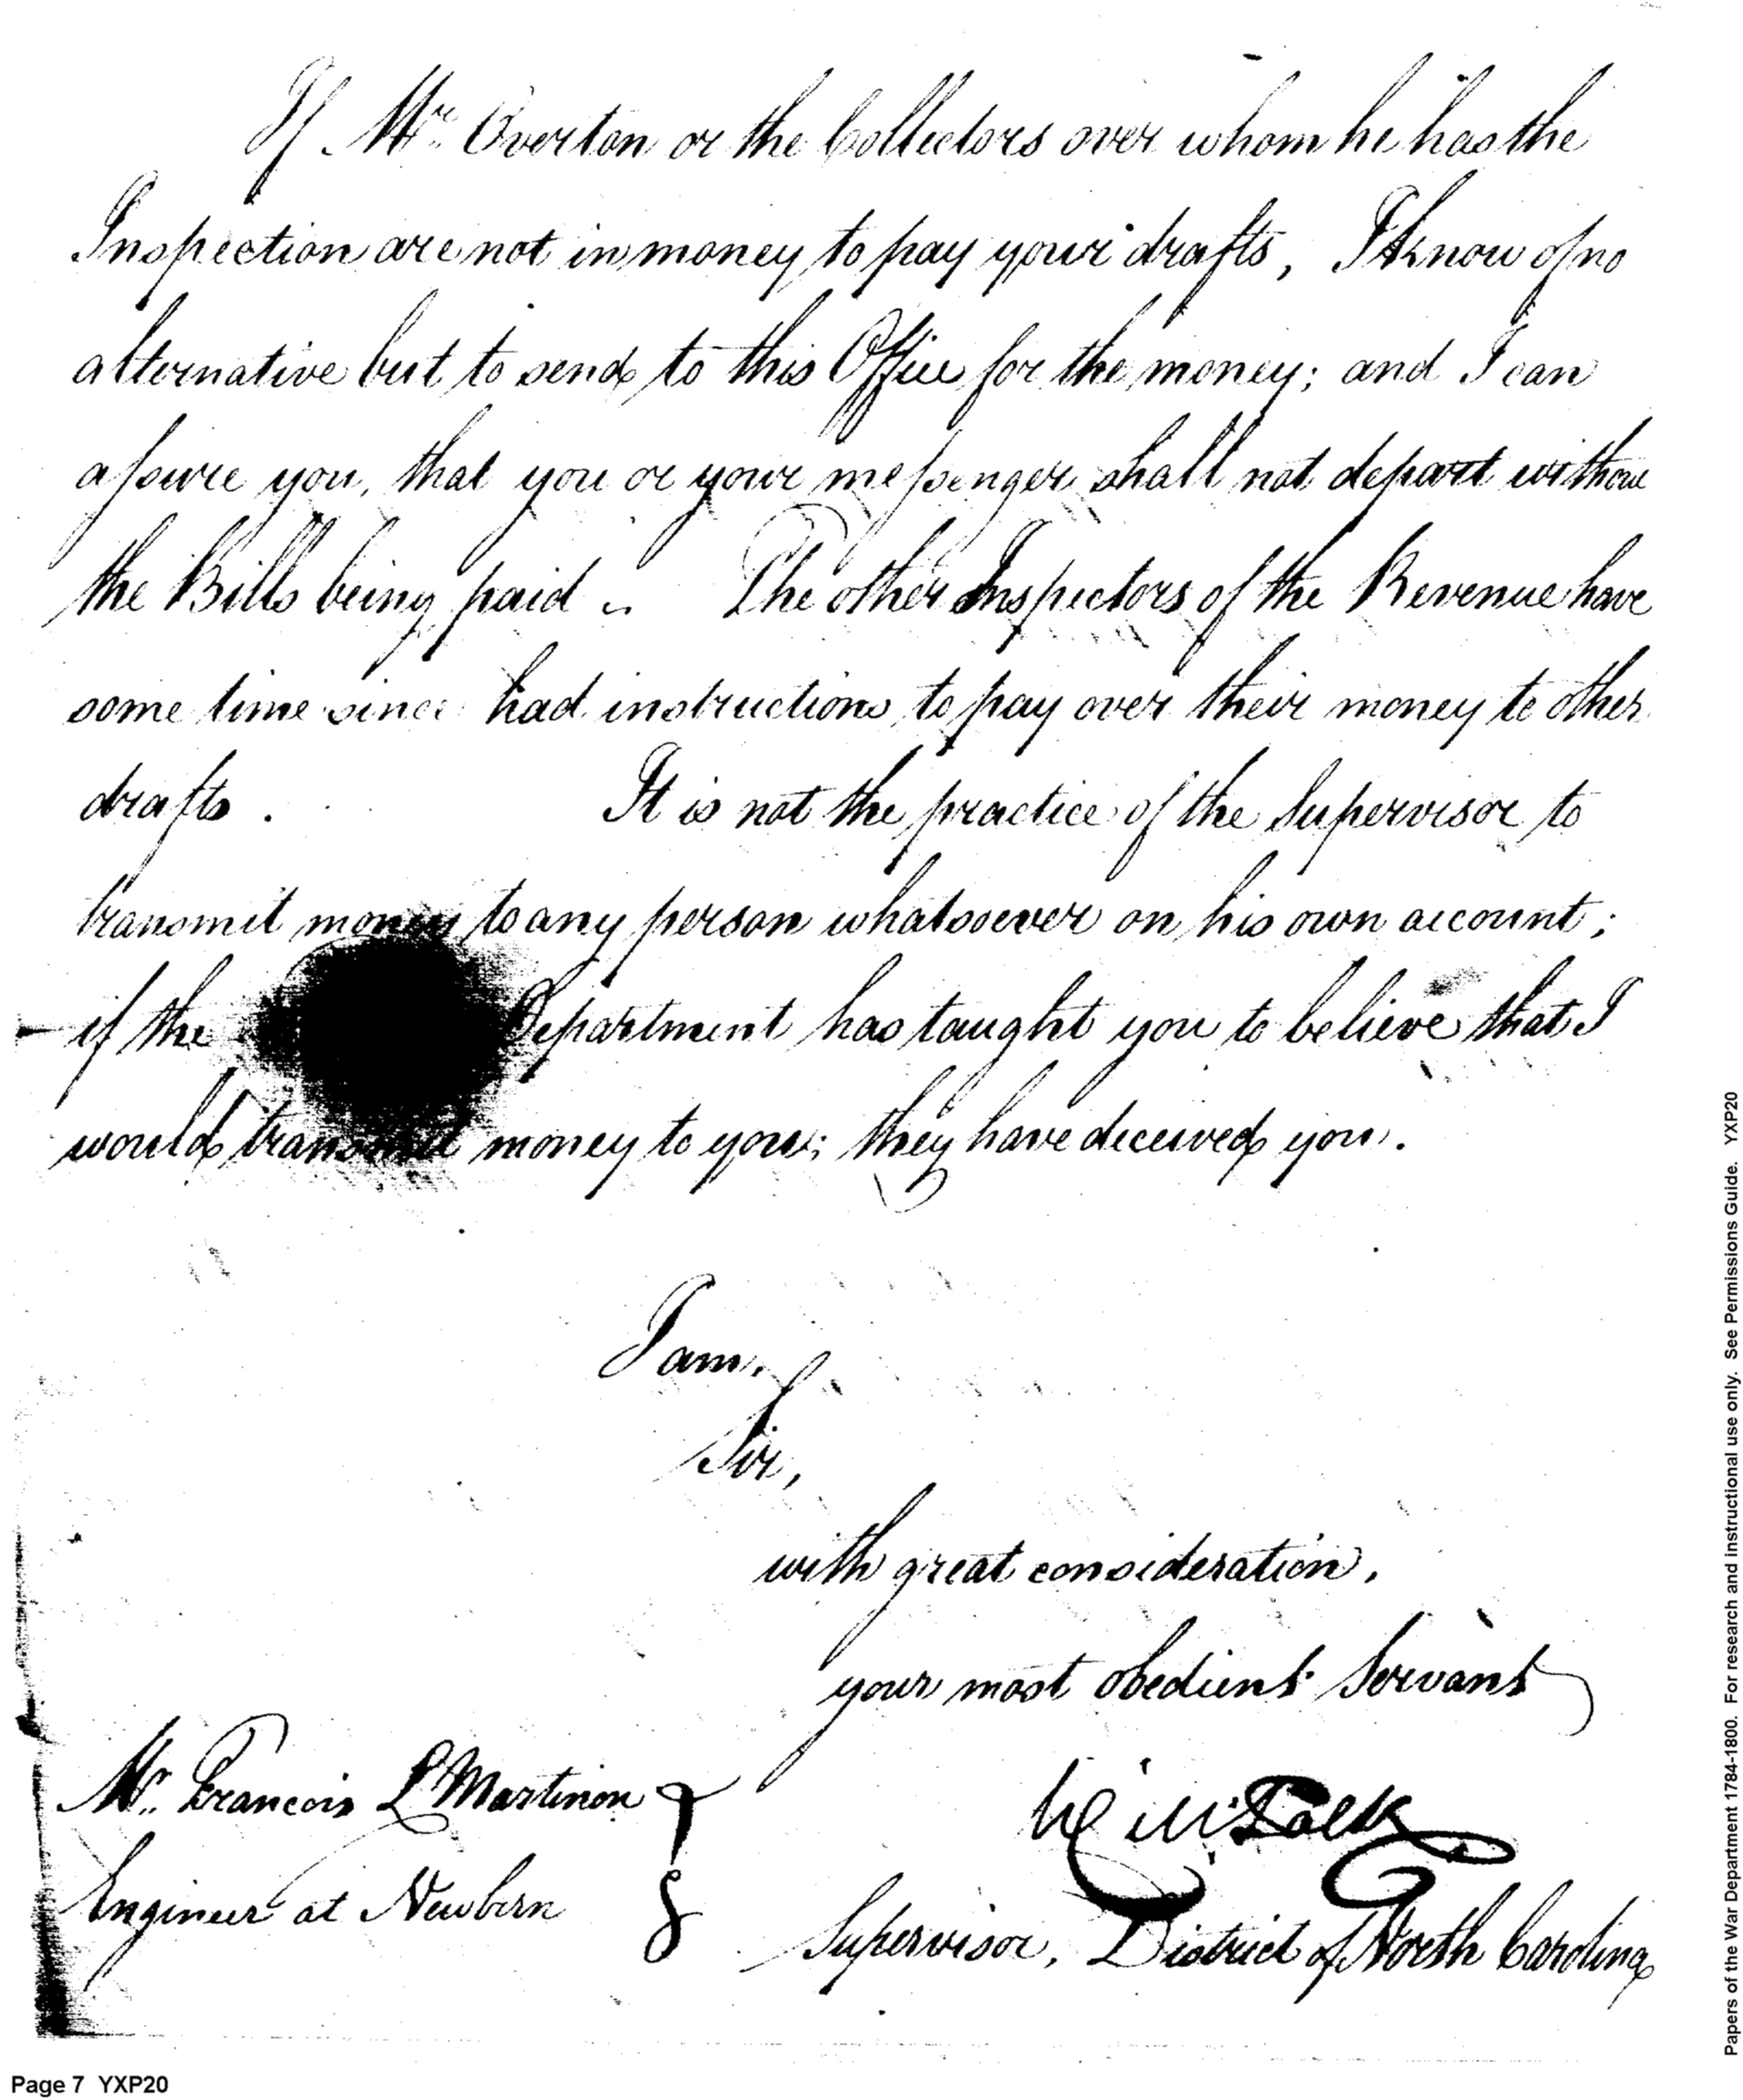 If Mr. Overton or the Collectors over whom he has the
Inspection are not in money to pay your drafts, I know of no
alternative but to send to this Office for the money; and I can
assure you, that you or your messenger shall not depart withou
the Bills being paid. The other Inspectors of the Revenue have
some time since had instructions to pay over their money to other
drafts. It is not the practice of the Supervisor to
transmit money to any person whatsoever on his own account;
if the Department has taught you to believe that I
would transmit money to you; they have deceived you.
I am,
Sir,
with great consideration,
your most obedient Servant
Mr. Francois L Martinon
Engineer at Newbern
Wm Polk
Supervisor, District of North Carolina
Papers of the War Department 1784-1800. For research and instructional use only. See Permissions Guide. YXP20
Page 7 YXP20